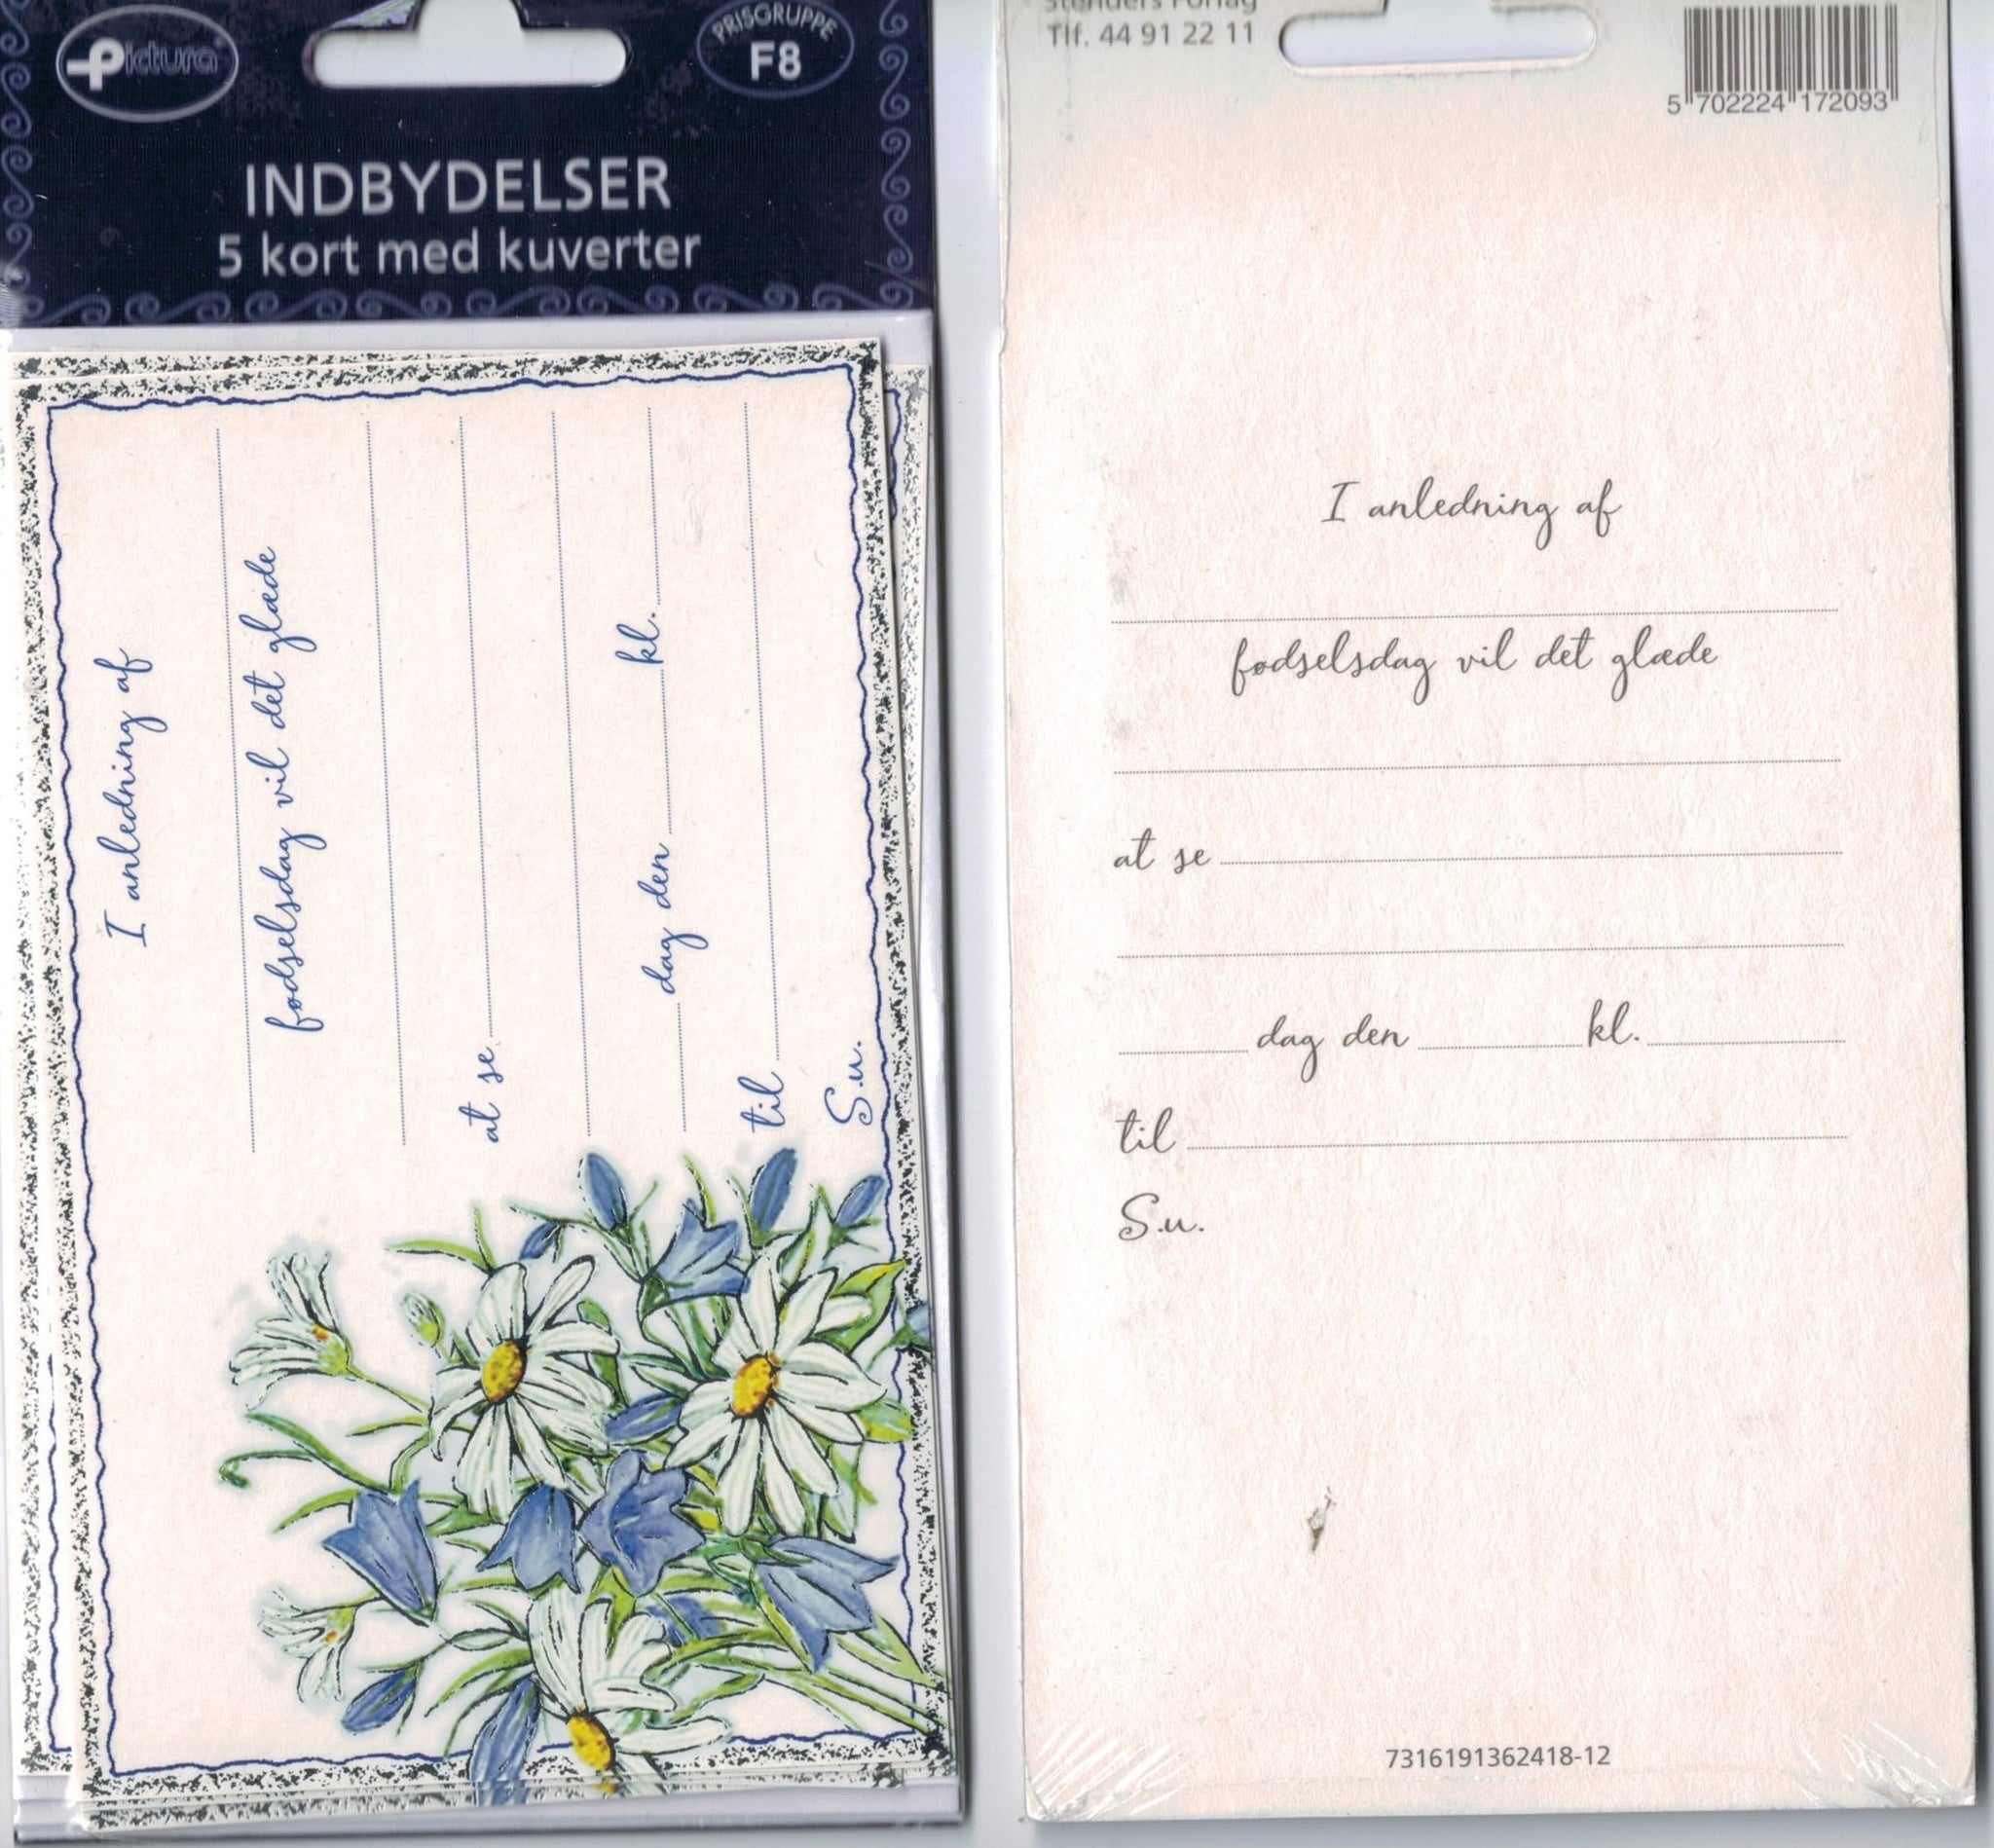 Pictura
PRISGRUPPE
F8
INDBYDELSER
5 kort med kuverter
I anledning af
fødselsdag vil det glæde
at se
dag den kl.
til
S.u.
Stenders Forlag
Tlf. 44 91 22 11
5 702224 172093
I anledning af
fødselsdag vil det glæde
at se
dag den kl.
til
S.u.
7316191362418-12